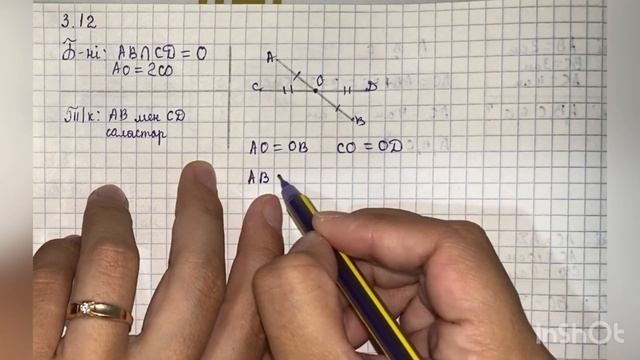 3.12
Б-ні: AB∩CD = O
AO = 2CO
Т/к: AB мен CD
салыстыр
A
C
O
D
B
AO = OB CO = OD
AB
InShOt